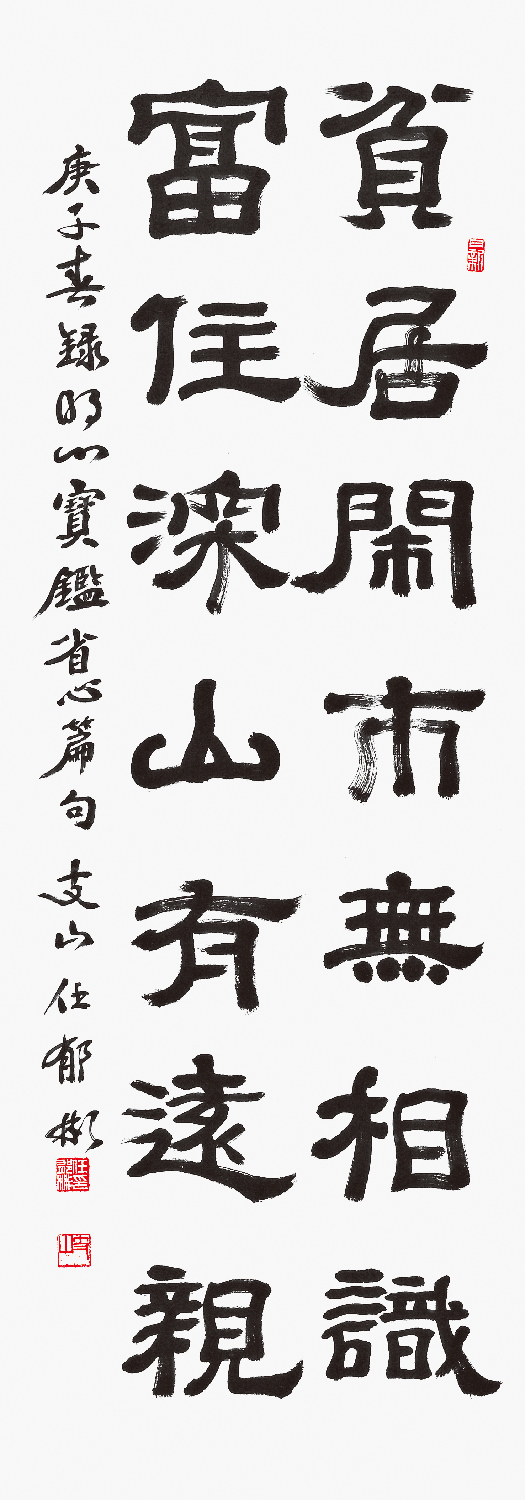 貧居閙市無相識
富住深山有遠親
庚子春録明心寶鑑省心篇句 支山 任郁彬